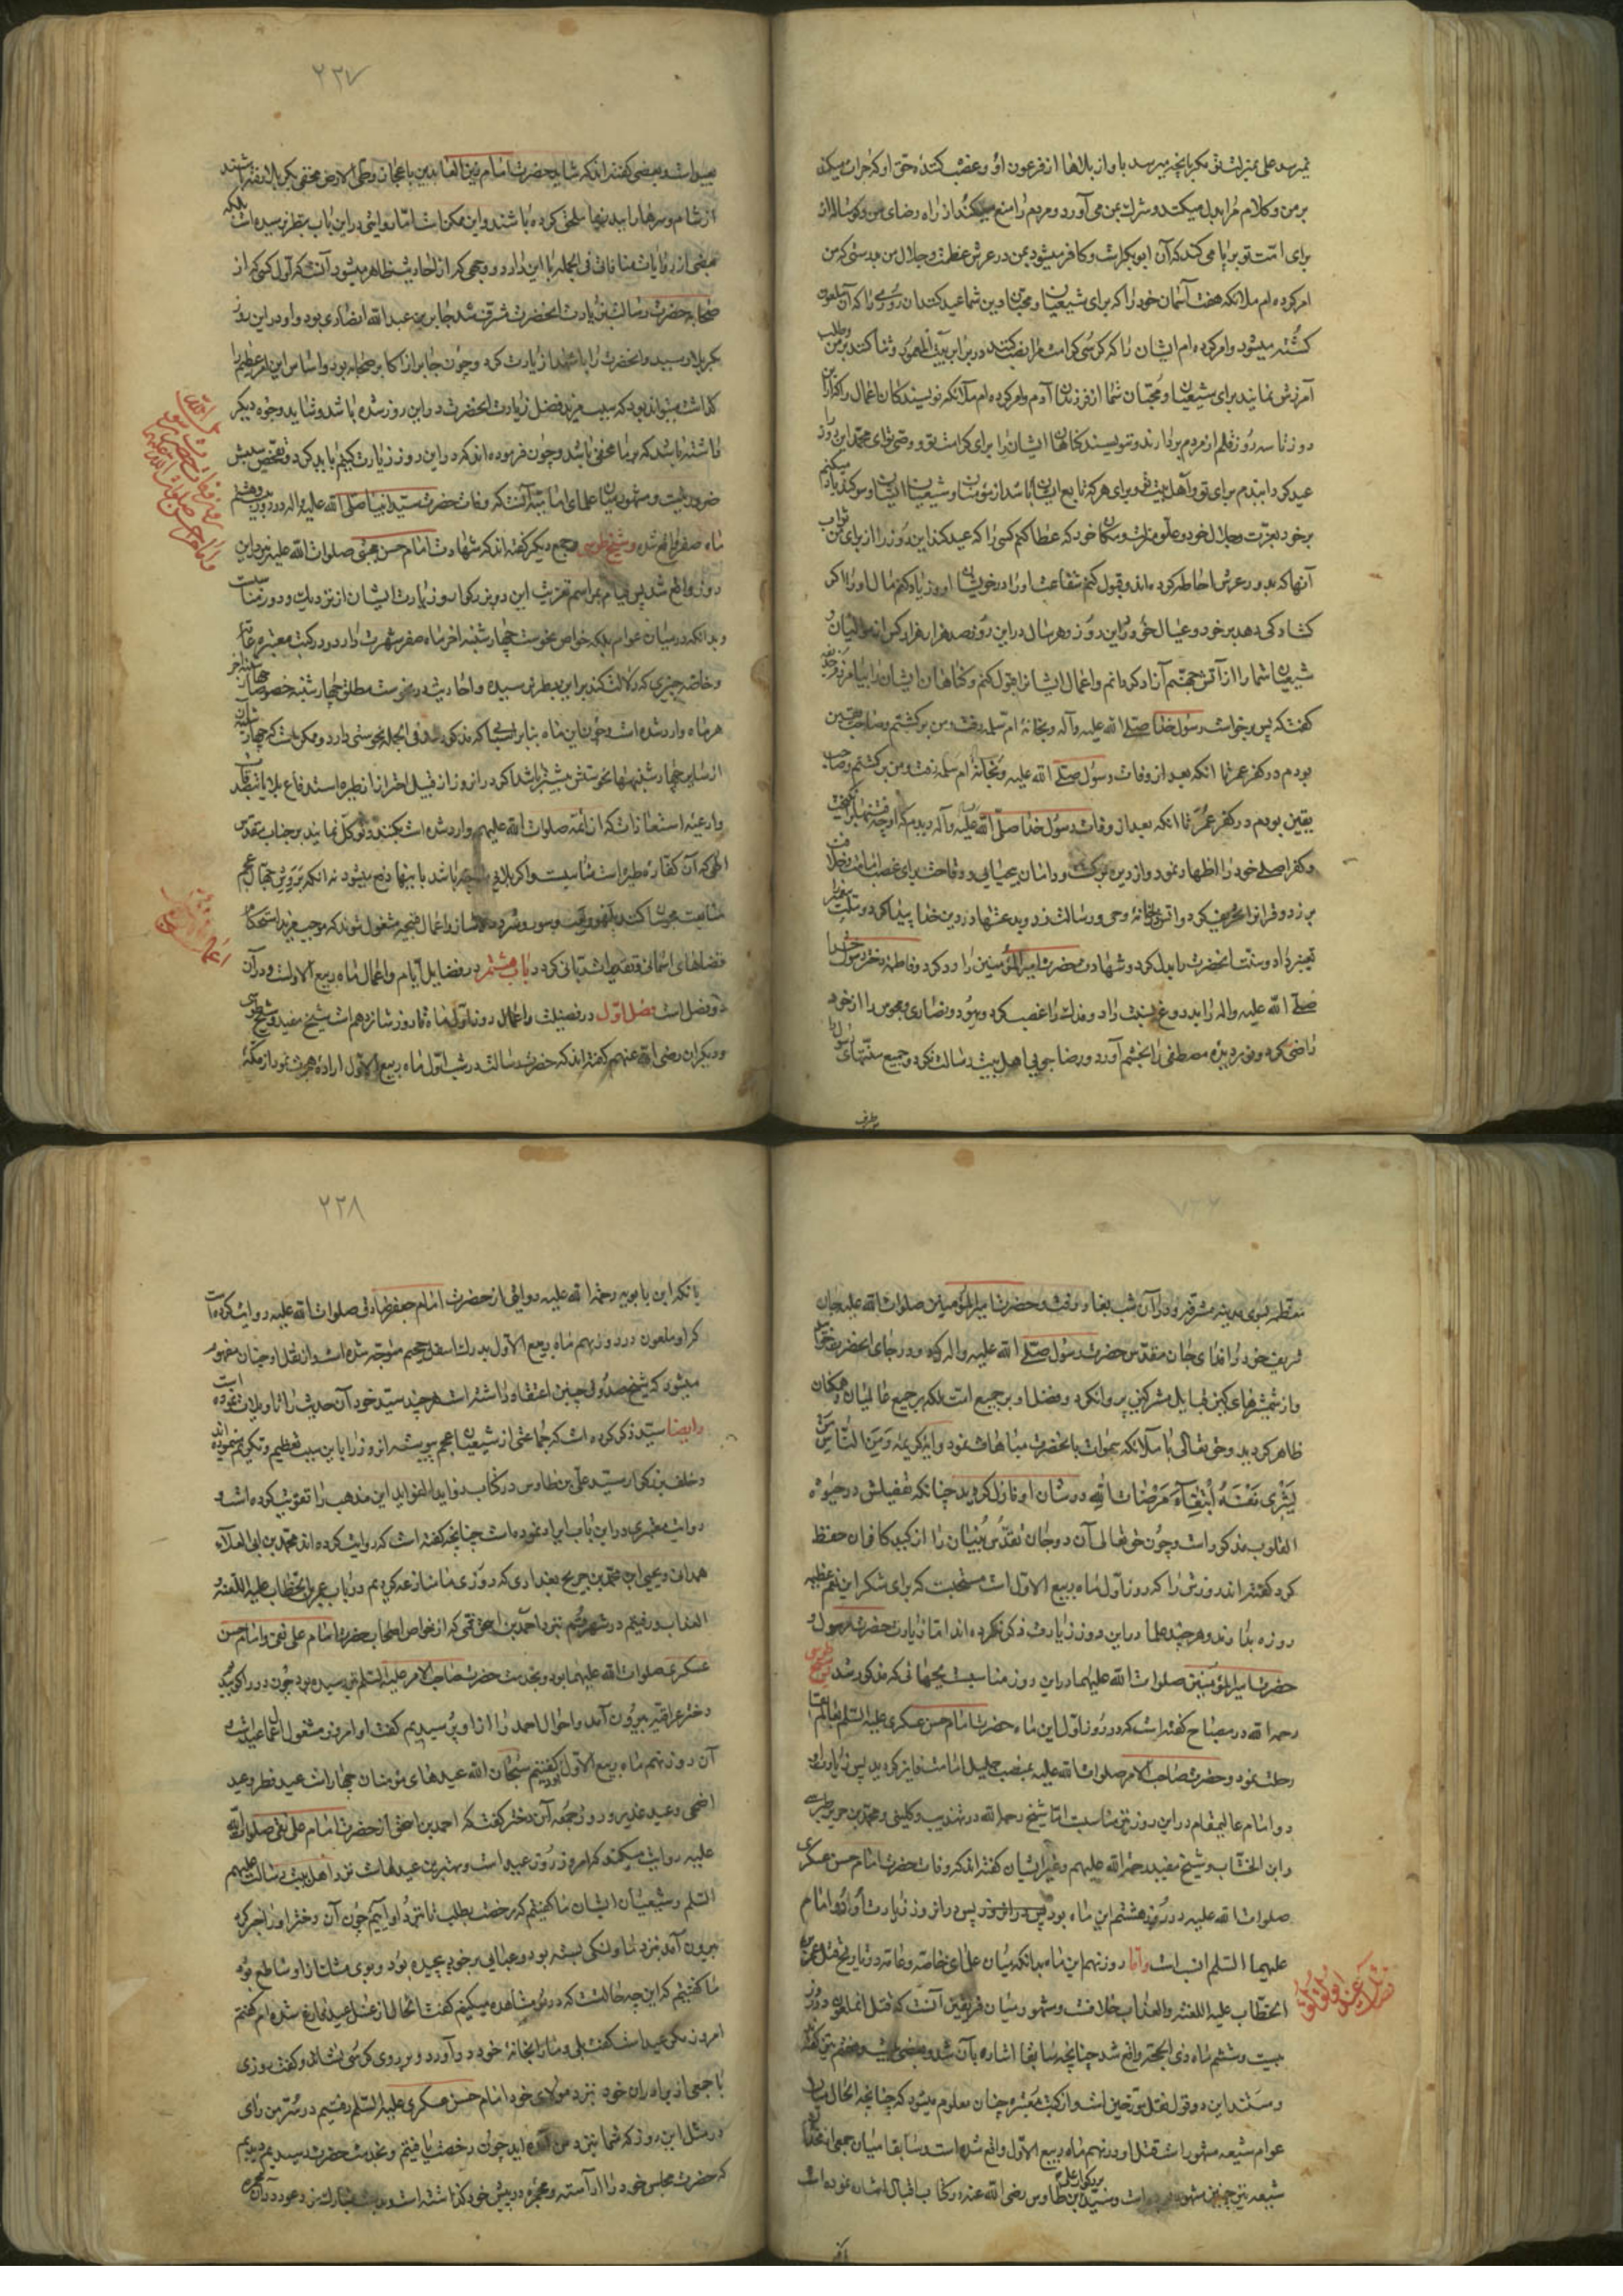 نمیرسد علی بمنزلت تو مکر بآنچه میرسد باو از بلاها از فرعون او و غصب کننده حق او که جرات میکند
بر من و کلام مرا بدل میکند و شرک بمن می آورد و مردم را منع میکند از راه رضای من و کوساله از
برای امت تو برپا می کند که آن ابو بکر است و کافر میشود بمن در عرش عظمت و جلال من بدرستی که من
امر کرده ام ملائکه هفت آسمان خود را که برای شیعیان و محبان دین شما عید کنند آن روزی را که آن ملعون
کشته میشود و امر کرده ام ایشان را که کرسی کرامت مرا نصب کنند در برابر بیت المعمور و ثنا کنند بر من و طلب
آمرزش نمایند برای شیعیان و محبان شما از فرزندان آدم و امر کرده ام ملائکه نویسندکان اعمال را که از این
روز تا سه روز قلم از مردم بردارند و ننویسند کناهان ایشان را برای کرامت تو و وصی تو ای محمد این روز را
عیدی کردانیدم برای تو و اهل بیت تو و برای هر که تابع ایشان باشد از مؤمنان و شیعیان ایشان و سوکند یاد میکنم
بر خود بعزت و جلال خود و علو منزلت و مکان خود که عطا کنم کسی را که عید کند این روز را از برای من ثواب
آنها که بدور عرش احاطه کرده اند و قبول کنم شفاعت او را در خویشان او و زیاد کنم مال او را اکر
کشادکی دهد بر خود و عیال خود در این روز و هر سال در این روز صد هزار هزار کس از موالیان و
شیعیان شما را از آتش جهنم آزاد کردانم و اعمال ایشان را قبول کنم و کناهان ایشان را بیامرزم حذیفه
کفت که پس برخواست رسول خدا صلی الله علیه و آله و بخانه ام سلمه رفت و من برکشتم و صاحب یقین
بودم در کفر عمر تا آنکه بعد از وفات رسول صلی الله علیه و بخانه ام سلمه رفت و من برکشتم و صاحب
یقین بودم در کفر عمر تا آنکه بعد از وفات رسول خدا صلی الله علیه و آله دیدم که او چه فتنها برانکیخت
و کفر اصلی خود را اظهار نمود و از دین برکشت و دامان بیحیایی و وقاحت برای غصب امامت و خلافت
بر زد و قرآن را تحریف کرد و آتش در خانه وحی و رسالت زد و بدعتها در دین خدا پیدا کرد و ملت پیغمبر را
تغییر داد و سنت آنحضرت را بدل کرد و شهادت حضرت امیر المؤمنین را رد کرد و فاطمه دختر رسول خدا
صلی الله علیه و اله را بدروغ نسبت داد و فدک را غصب کرد و یهود و نصاری و مجوس را از خود
راضی کرد و نور دیده مصطفی را بخشم آورد و رضا جویی اهل بیت رسالت نکرد و جمیع سنتهای رسول را
برطرف
۲۲۷
بعضی کفته اند که شاید حضرت امام زین العابدین باعجاز و طی الارض مخفی بکربلا رفته باشند
از شام و سرها را ببدنها ملحق کرده باشند و این ممکنست اما روایتی در این باب بنظر نرسیده است بلکه
بعضی از روایات منافات فی الجمله با این دارد و وجهی که از احادیث ظاهر میشود آنست که اول کسی که از
صحابه حضرت رسالت بزیارت آنحضرت مشرف شد جابر بن عبد الله انصاری بود و او در این روز
بکربلا رسید و آنحضرت را با شهدا زیارت کرد و چون جابر از اکابر صحابه بود و اساس این امر عظیم را
کذاشت میتواند بود که سبب مزید فضل زیارت آنحضرت در این روز شده باشد و شاید وجوه دیکر
داشته باشد که بر ما مخفی باشد و چون فرموده اند که در این روز زیارت کنیم باید کرد و تفحص سببش
ضرور نیست و مشهور میان علمای امامیه آنست که وفات حضرت سید انبیا صلی الله علیه و اله در روز بیست و هشتم
ماه صفر واقع شده و شیخ طوسی و جمع دیکر کفته اند که شهادت امام حسن مجتبی صلوات الله علیه نیز در این
روز واقع شد پس قیام بمراسم تعزیت این دو بزرکوار و زیارت ایشان از نزدیک و دور مناسبست
و بدانکه در میان عوام بلکه خواص نحوست چهار شنبه آخر ماه صفر شهرت دارد و در کتب معتبره عامه
و خاصه چیزی که دلالت کند بر این بنظر نرسیده و احادیث در نحوست مطلق چهار شنبه خصوصا چهار شنبه آخر
هر ماه وارد شده است و چون این ماه بنابر اسبابی که مذکور شد فی الجمله نحوستی دارد و ممکنست که چهار شنبه آن
از سایر چهار شنبهها نحوستش بیشتر باشد اکر در آن روز از قبیل احتراز از طیره استدفاع بلا بتصدقات
و ادعیه استعاذات که از ائمه صلوات الله علیهم وارد شده است بکنند و توکل نمایند بر جناب مقدس
الهی که آن کفاره طیره است مناسبست و اکر بلائی باشد باینها دفع میشود نه آنکه بروش جهال عجم
متابعت مجوسان کنند بلهو و لعب و سور و سرود و ساز و اعمال قبیحه مشغول شوند که موجب مزید استحقاق
قضاهای آسمانی و تقدیرات ربانی کردد باب هشتم در فضایل ایام و اعمال ماه ربیع الاولست و در آن
دو فصل است فصل اول در فضیلت و اعمال روز اول ماه تا روز شانزدهم است شیخ مفید و شیخ طوسی
و دیکران رضی الله عنهم کفته اند که حضرت رسالت در شب اول ماه ربیع الاول اراده هجرت نمود از مکه
معظمه بسوی مدینه مشرفه و در آن شب بغار رفت و حضرت امیر المؤمنین صلوات الله علیه جان
شریف خود را فدای جان مقدس حضرت رسول صلی الله علیه و اله کرد و در جای آنحضرت خوابید
و از شمشیرهای کین قبایل مشرکین پروا نکرد و فضل او بر جمیع امت بلکه بر جمیع عالمیان و همکان
ظاهر کردید و حق تعالی با ملائکه سموات بآنحضرت مباهات نمود و آیه کریمه و من الناس من
یشری نفسه ابتغاء مرضات الله در شان او نازل کردید چنانکه تفصیلش در حیوة
القلوب مذکور است و چون حق تعالی آن دو جان تقدس بنیان را از کید کافران حفظ
کرد کفته اند و زش را که روز اول ماه ربیع الاول است مستحبست که برای شکر این نعم عظیمه
روزه بدارند و هر چند علما در این روز زیارت ذکر نکرده اند اما زیارت حضرت رسول و
حضرت امیر المؤمنین صلوات الله علیهما در این روز مناسبست بجهاتی که مذکور شد شیخ طوسی
رحمه الله در مصباح کفته است که در روز اول این ماه حضرت امام حسن عسکری علیه السلام بعالم بقا
رحلت نمود و حضرت صاحب الامر صلوات الله علیه بمنصب جلیل امامت فایز کردید پس زیارت
دو امام عالیمقام در این روز نیز مناسبست اما شیخ رحمه الله در تهذیب و کلینی و محمد بن جریر طبری
و ابن الخشاب و شیخ مفید رحمة الله علیهم و غیر ایشان کفته اند که وفات حضرت امام حسن عسکری
صلوات الله علیه در روز هشتم این ماه بود پس در آن روز پس در آن روز زیارت آن دو امام
علیهما السلام انسب است و اما روز نهم این ماه بدانکه میان علمای خاصه و عامه در تاریخ قتل عمر بن
الخطاب علیه اللعنه و العذاب خلافست و مشهور میان فریقین آنست که قتل آنملعون در روز
بیست و ششم ماه ذی الحجه واقع شد چنانچه سابقا اشاره بآن شد و بعضی بیست و هفتم نیز کفته اند
و مستند این دو قول نقل مورخین است و از کتب معتبره چنان معلوم میشود که چنانچه الحال میان
عوام شیعه مشهور است قتل او در نهم ماه ربیع الاول واقع شده است و سابقا میان جمعی از محدثان
شیعه نیز چنین مشهور بوده است و سید بزرکوار علی بن طاوس رضی الله عنه در کتاب اقبال اشاره نموده است
قتل عمر ابو لؤلؤ
۲۲۸
بآنکه ابن بابویه رحمة الله علیه روایتی از حضرت امام جعفر صادق صلوات الله علیه روایت کرده است
که او ملعون در روز نهم ماه ربیع الاول بدرک اسفل جحیم متوجه شده است و از نقل او چنان مفهوم
میشود که شیخ صدوق چنین اعتقاد داشته است هر چند سید خود آن حدیث را تاویلات نموده است
و ایضا سید ذکر کرده است که جماعتی از شیعیان عجم پیوسته آن روز را باین سبب تعظیم و تکریم مینموده اند
و خلف بزرکوار سید علی بن طاوس در کتاب زواید الفواید این مذهب را تقویت کرده است و
روایت معتبری در این باب ایراد نموده است چنانچه کفته است که روایت کرده اند محمد بن ابی العلاء
همدانی و یحیی بن محمد بن جریح بغدادی که روزی ما منازعه کردیم در باب عمر بن الخطاب علیه اللعنه و
العذاب و رفتیم در شهر قم بنزد احمد بن اسحق قمی که از خواص اصحاب حضرت امام علی نقی و امام حسن
عسکری صلوات الله علیهما بود و بخدمت حضرت صاحب الامر علیه السلام نیز رسیده بود چون در را کوبیدیم
دختر عراقیه بیرون آمد و احوال احمد را از او پرسیدیم کفت او امروز مشغول اعمال عید است و
آن روز نهم ماه ربیع الاول بود کفتیم سبحان الله عیدهای مؤمنان چهار است عید فطر و عید
اضحی و عید غدیر و روز جمعه آن دختر کفت که احمد بن اسحق از حضرت امام علی نقی صلوات الله
علیه روایت میکند که امروز روز عید است و بهترین عیدهاست نزد اهل بیت رسالت علیهم
السلام و شیعیان ایشان ما کفتیم که رخصت بطلب تا بنزد او آییم چون آن دختر او را خبر کرد
بیرون آمد بنزد ما و لنکی بسته بود و عبایی بر خود پیچیده بود و بوی مشک از او ساطع بود
ما کفتیم که این چه حالتست که در تو مشاهده میکنیم کفت الحال از غسل عید فارغ شده ام کفتیم
امروز مکر عید است کفت بلی و ما را بخانه خود در آورد و بر روی کرسی نشاند و کفت روزی
با جمعی از برادران خود بنزد مولای خود امام حسن عسکری علیه السلام رفتیم در سر من رای
در مثل این روز که شما بنزد من آمده اید چون رخصت یافتیم و بخدمت حضرت رسیدیم دیدیم
که حضرت مجلس خود را آراسته و مجمره در پیش خود کذاشته است و بدست مبارک خود عود در آن مجمره